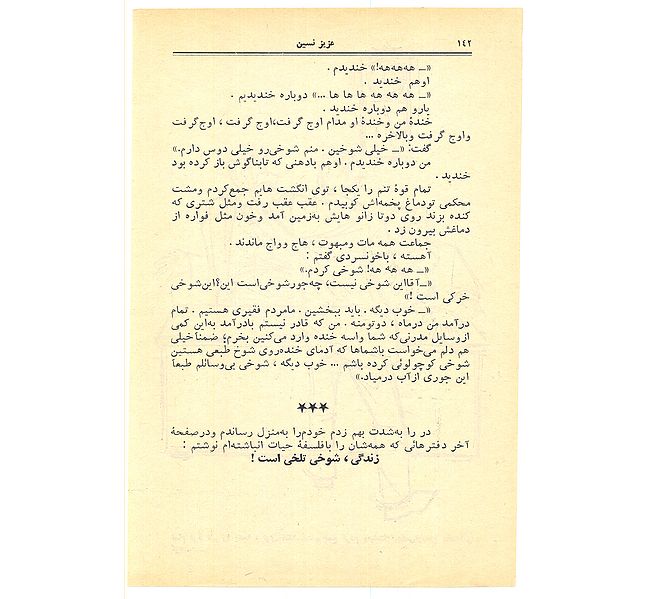 ۱٤۲
عزیز نسین
«ــ هه‌هه‌هه!» خندیدم .
اوهم خندید .
«ــ هه هه هه ها ها ها ...» دوباره خندیدیم .
یارو هم دوباره خندید .
خندهٔ من وخندهٔ او مدام اوج گرفت،اوج گرفت ، اوج‌گرفت
واوج گرفت وبالاخره ...
گفت: «ــ خیلی شوخین . منم شوخی‌رو خیلی دوس دارم.»
من دوباره خندیدم . اوهم بادهنی که تابناگوش باز کرده بود
خندید .
تمام قوهٔ تنم را یکجا ، توی انگشت هایم جمع‌کردم ومشت
محکمی تودماغ پخمه‌اش کوبیدم . عقب عقب رفت ومثل شتری که
کنده بزند روی دوتا زانو هایش به‌زمین آمد وخون مثل فواره از
دماغش بیرون زد .
جماعت همه مات ومبهوت ، هاج وواج ماندند .
آهسته ، باخونسردی گفتم :
«ــ هه هه هه! شوخی کردم.»
«ــآقااین شوخی نیست، چه‌جورشوخی‌است این؟این‌شوخی
خرکی است !»
«ــ خوب دیگه . باید ببخشین . مامردم فقیری هستیم . تمام
درآمد من درماه ، دوتومنه . من که قادر نیستم بادرآمد به‌این کمی
ازوسایل مدرنی‌که شما واسه خنده وارد می‌کنین بخرم؛ ضمناخیلی
هم دلم می‌خواست باشماها که آدمای خنده‌روی شوخ طبعی هستین
شوخی کوچولوئی کرده باشم ... خوب دیگه ، شوخی بی‌وسائلم طبعاً
این جوری ازآب درمیاد.»
★★★
در را به‌شدت بهم زدم خودم‌را به‌منزل رساندم ودرصفحهٔ
آخر دفترهائی که همه‌شان را بافلسفهٔ حیات انباشته‌ام نوشتم :
زندگی ، شوخی تلخی است !